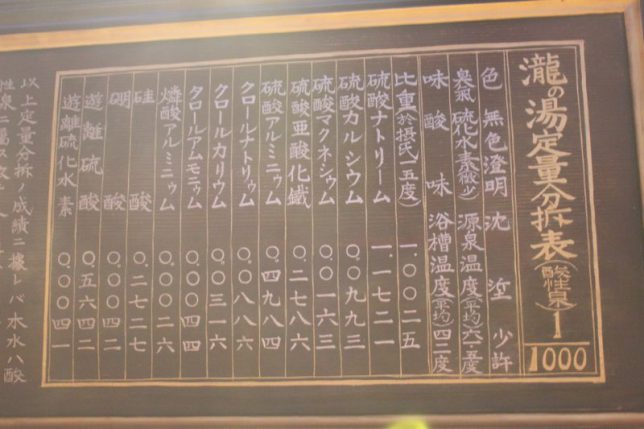 瀧の湯定量分析表(酸性泉)1/1000
色 無色澄明 沈 㘴 少許
臭氣 硫化水素(極少) 源泉温度(平均)六一·五度
味 酸味 浴槽温度(平均)四二度
比重(於摂氏一五度) 一.〇〇二五
硫酸ナトリーム 一.一七二一
硫酸カルシウム 〇.〇九九三
硫酸マクネシウム 〇.〇一六三
硫酸亜酸化鐵 〇.二七八六
硫酸アルミニウム 〇.四九八四
クロールナトリウム 〇.〇八八六
クロールカリウム 〇.〇三一六
クロールアムモニウム 〇.〇〇四四
燐酸アルミニウム 〇.〇〇二六
硅酸 〇.二七二七
硼酸 〇.〇〇四二
遊離硫酸 〇.五六四二
遊離硫化水素 〇.〇〇四一
以上定量分析ノ成績ニ據レバ本水ハ酸
性泉ニ屬ス